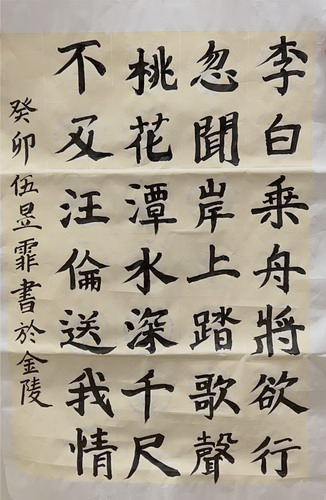 李白乗舟將欲行
忽聞岸上踏歌聲
桃花潭水深千尺
不及汪倫送我情
癸卯伍昱霏書於金陵